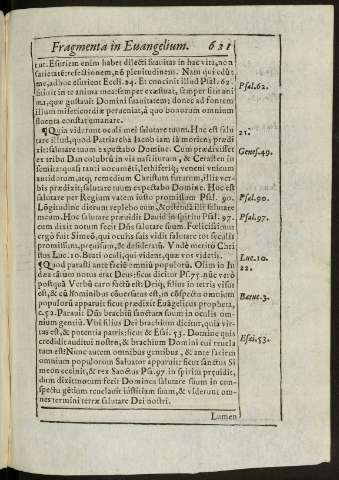 Fragmenta in Euangelium. 621
tur. Esuriem enim habet dilecti suauitas in hac vita, non
satietatē: refectionem, nō plenitudinem. Nam qui edūt
me, ad huc esurient Eccli. 24. Et concinit illud Psal. 62.
sitiuit in te anima mea: semper exæstuat, semper sitit ani
ma, quæ gustauit Domini suauitatem; donec ad fontem
illum misericordiæ perueniat, à quo bonorum omnium
fluenta constat manare.
¶Quia viderunt oculi mei salutare tuum. Hoc est salu
tare illud, quod Patriarcha Iacob iam iā moriens prædi
xit: salutare tuum expectabo Domine. Cum prædixisset
ex tribu Dan colubrū in via nasciturum, & Cerasten in
semita: quasi tanti nocumēti, lethiferiq; veneni vnicum
antidotum, atq; remedium Christum futurum, illis ver-
bis prædixit; salutare tuum expectabo Domine. Hoc est
salutare per Regium vatem iusto promissum Psal. 90.
Lōgitudine dierum replebo eum, & ostendā illi salutare
meum. Hoc salutare præuidit Dauid in spiritu Psal. 97.
cum dixit notum fecit Dñs salutare suum. Fœlicissimus
ergò fuit Simeō, qui oculis suis vidit salutare tot sæculis
promissum, præuisum, & desideratū. Vndè meritò Chri
stus Luc. 10. Beati oculi, qui vident, quæ vos videtis.
¶Quod parasti ante faciē omniū populorū. Olim in Iu
dæa tātum notus erat Deus: sicut dicitur Ps. 75. nūc verò
postquā Verbū caro factū est: Deiq; filius in terris visus
est, & cū hominibus cōuersatus est, in cōspectu omnium
populorū apparuit sicut prædixit Euāgelicus propheta,
c. 52. Parauit Dñs brachiū sanctum suum in oculis om-
nium gentiū. Vbi filius Dei brachium dicitur, quia vir-
tus est, & potentia patris: sicut & Esai. 53. Domine quis
credidit auditui nostro, & brachium Domini cui reuela
tum est? Nunc autem omnibus gentibus, & ante faciem
omnium populorum Saluator apparuit: sicut sanctus Si
meon cecinit, & rex Sanctus Psa. 97. in spiritu præuidit,
dum dixit: notum fecit Dominus salutare suum in con-
spectu gētium reuelauit iustitiam suam, & viderunt om-
nes termini terræ salutare Dei nostri.
Lumen
Psal. 62.
21.
Genes. 49.
Psal. 90.
Psal. 97.
Luc. 10.
22.
Baruc. 3.
Esai. 53.